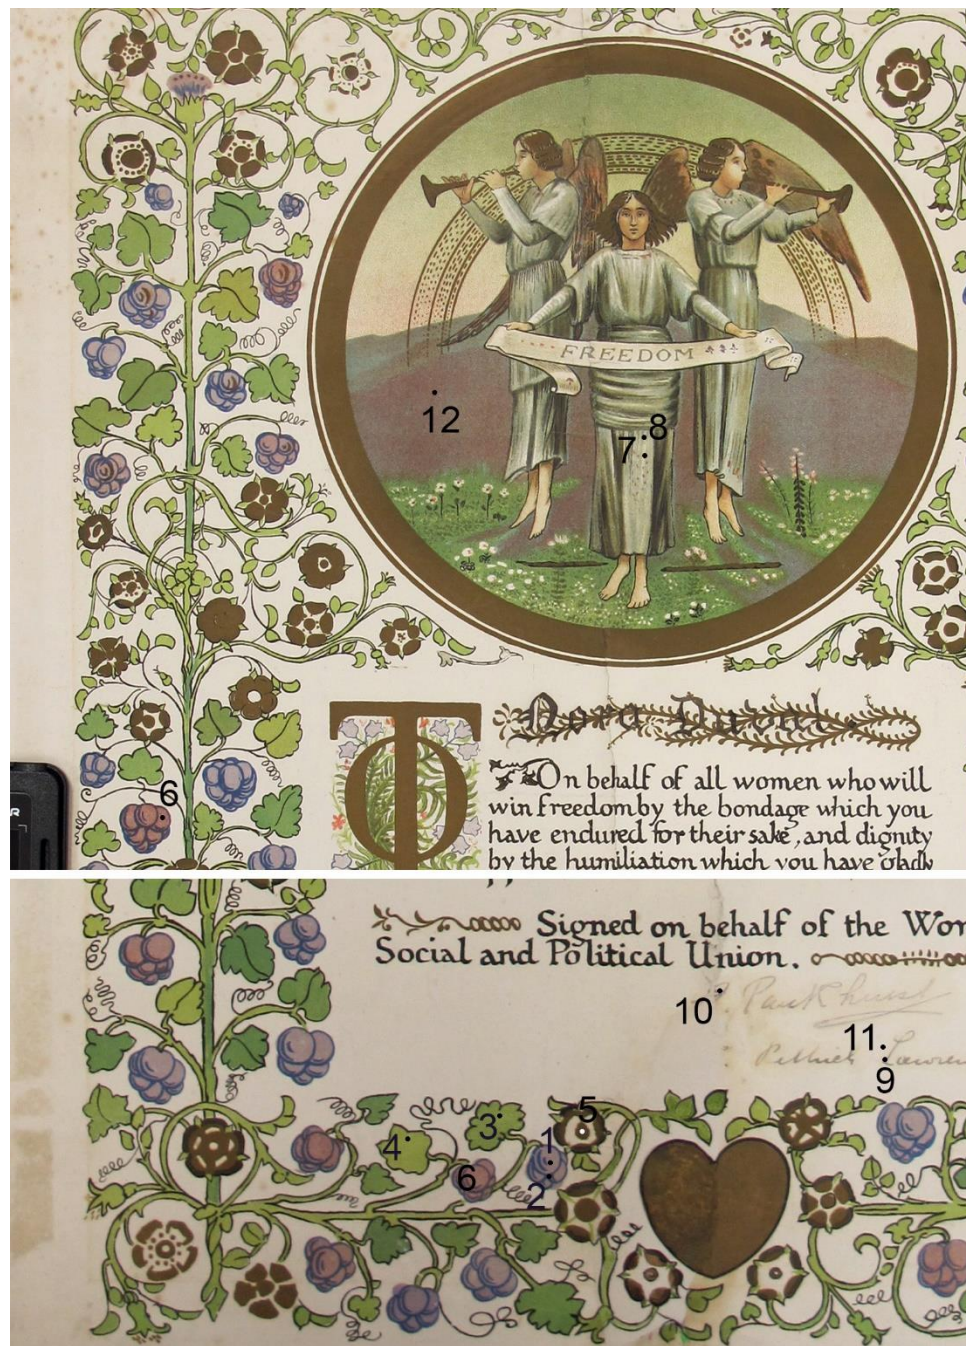 FREEDOM
TO
Nora Duval.
On behalf of all women who will
win freedom by the bondage which you
have endured for their sake, and dignity
by the humiliation which you have gladly
Signed on behalf of the Wor
Social and Political Union.
Pankhurst
Pethick Lawren
12
8
7
6
10
11
9
5
3
1
4
6
2